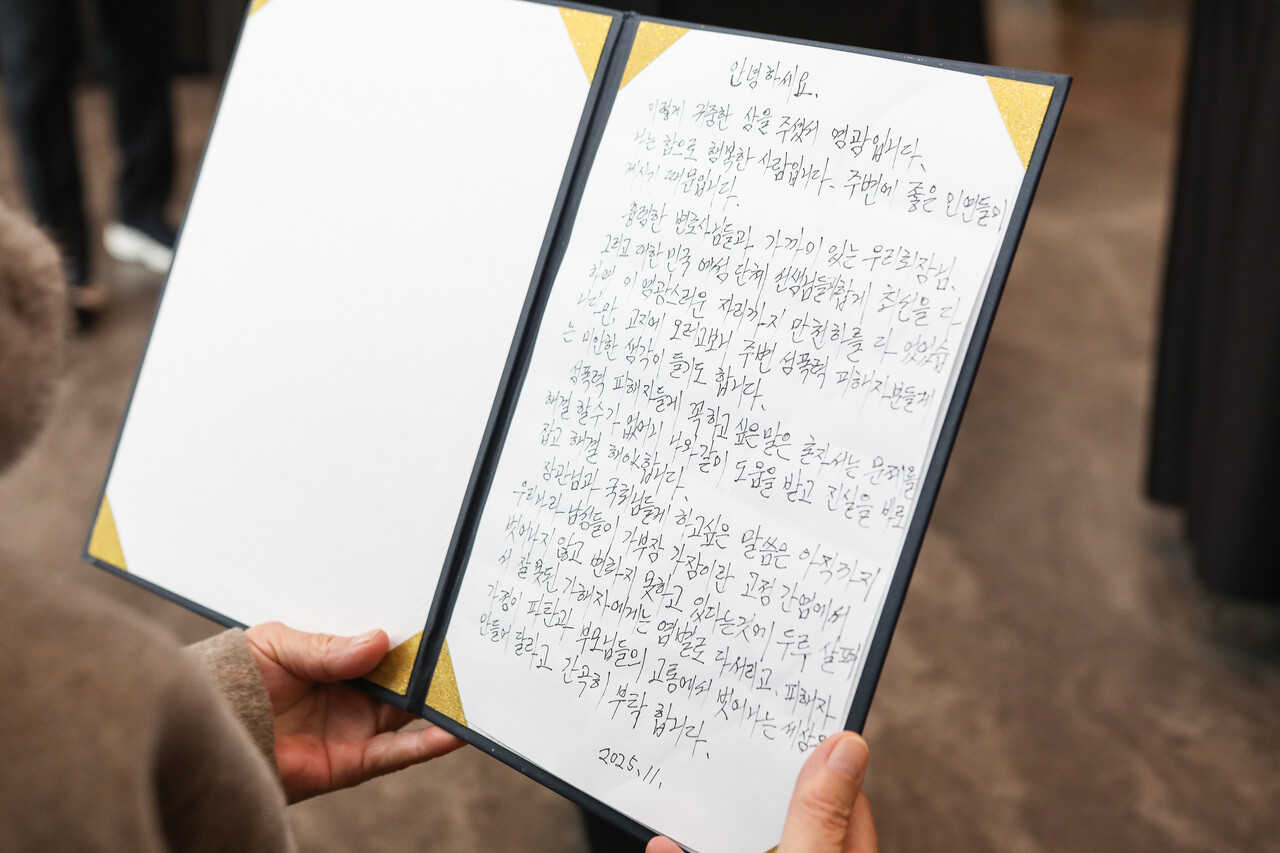 안녕하세요.
이렇게 귀중한 상을 주셨서 영광입니다.
나는 참으로 행복한 사람입니다. 주변에 좋은 인연들이
계시기 때문입니다.
훌륭한 변호사님들과 가까이 있는 우리회장님,
그리고 대한민국 여성 단체 선생님들께서 최선을 다
하여 이 영광스러운 자리까지 만천하를 다 얻었습
니다만, 고지에 오르고보니 주변 성폭력 피해자분들께
는 미안한 생각이 들기도 합니다.
성폭력 피해자들게 꼭하고 싶은말은 혼자서는 문제를
해결 할수가 없어니 나와같이 도움을 받고 진실을 바로
잡고 해결 해야합니다.
장관님과 국회님들게 하고싶은 말씀은 아직까지
우리나라 남성들이 가부장 가장이란 고정 간염에서
벗어나지 않고 변화지 못하고 있다는것에 두루 살피
서 잘못된 가해자에게는 엄벌로 다서리고, 피해자
가정이 파탄과 부모님들의 고통에서 벗어나는 세상으
만들어 달라고 간곡히 부탁 합니다.
2025. 11.